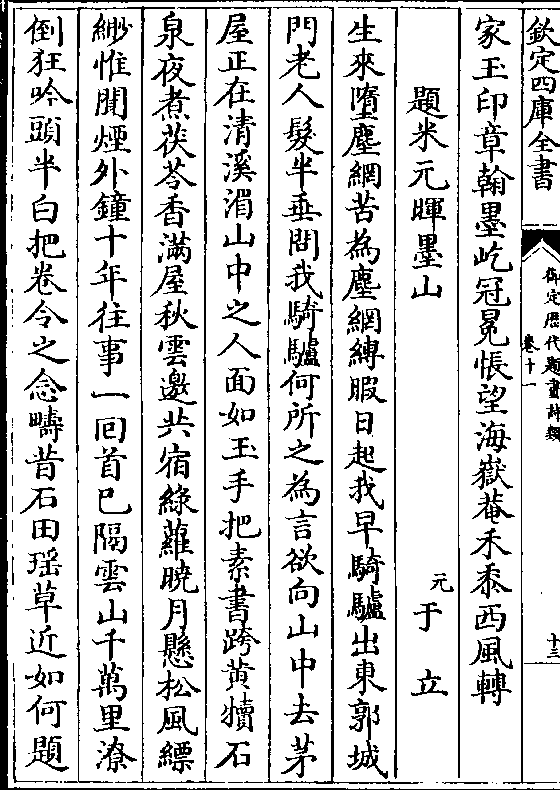 欽定四庫全書
御定歷代題畫詩類
卷十一
十三
家玉印章翰墨屹冠冕悵望海嶽菴禾黍西風轉
題米元暉墨山
元于立
生來墮塵網苦為塵網縛暇日起我早騎驢出東郭城
門老人髮半垂問我騎驢何所之為言欲向山中去茅
屋正在清溪湄山中之人面如玉手把素書跨黄犢石
泉夜煮茯苓香滿屋秋雲邀共宿綠蘿曉月懸松風縹
緲惟聞煙外鐘十年往事一回首已隔雲山千萬里潦
倒狂吟頭半白把卷令之念疇昔石田瑶草近如何題